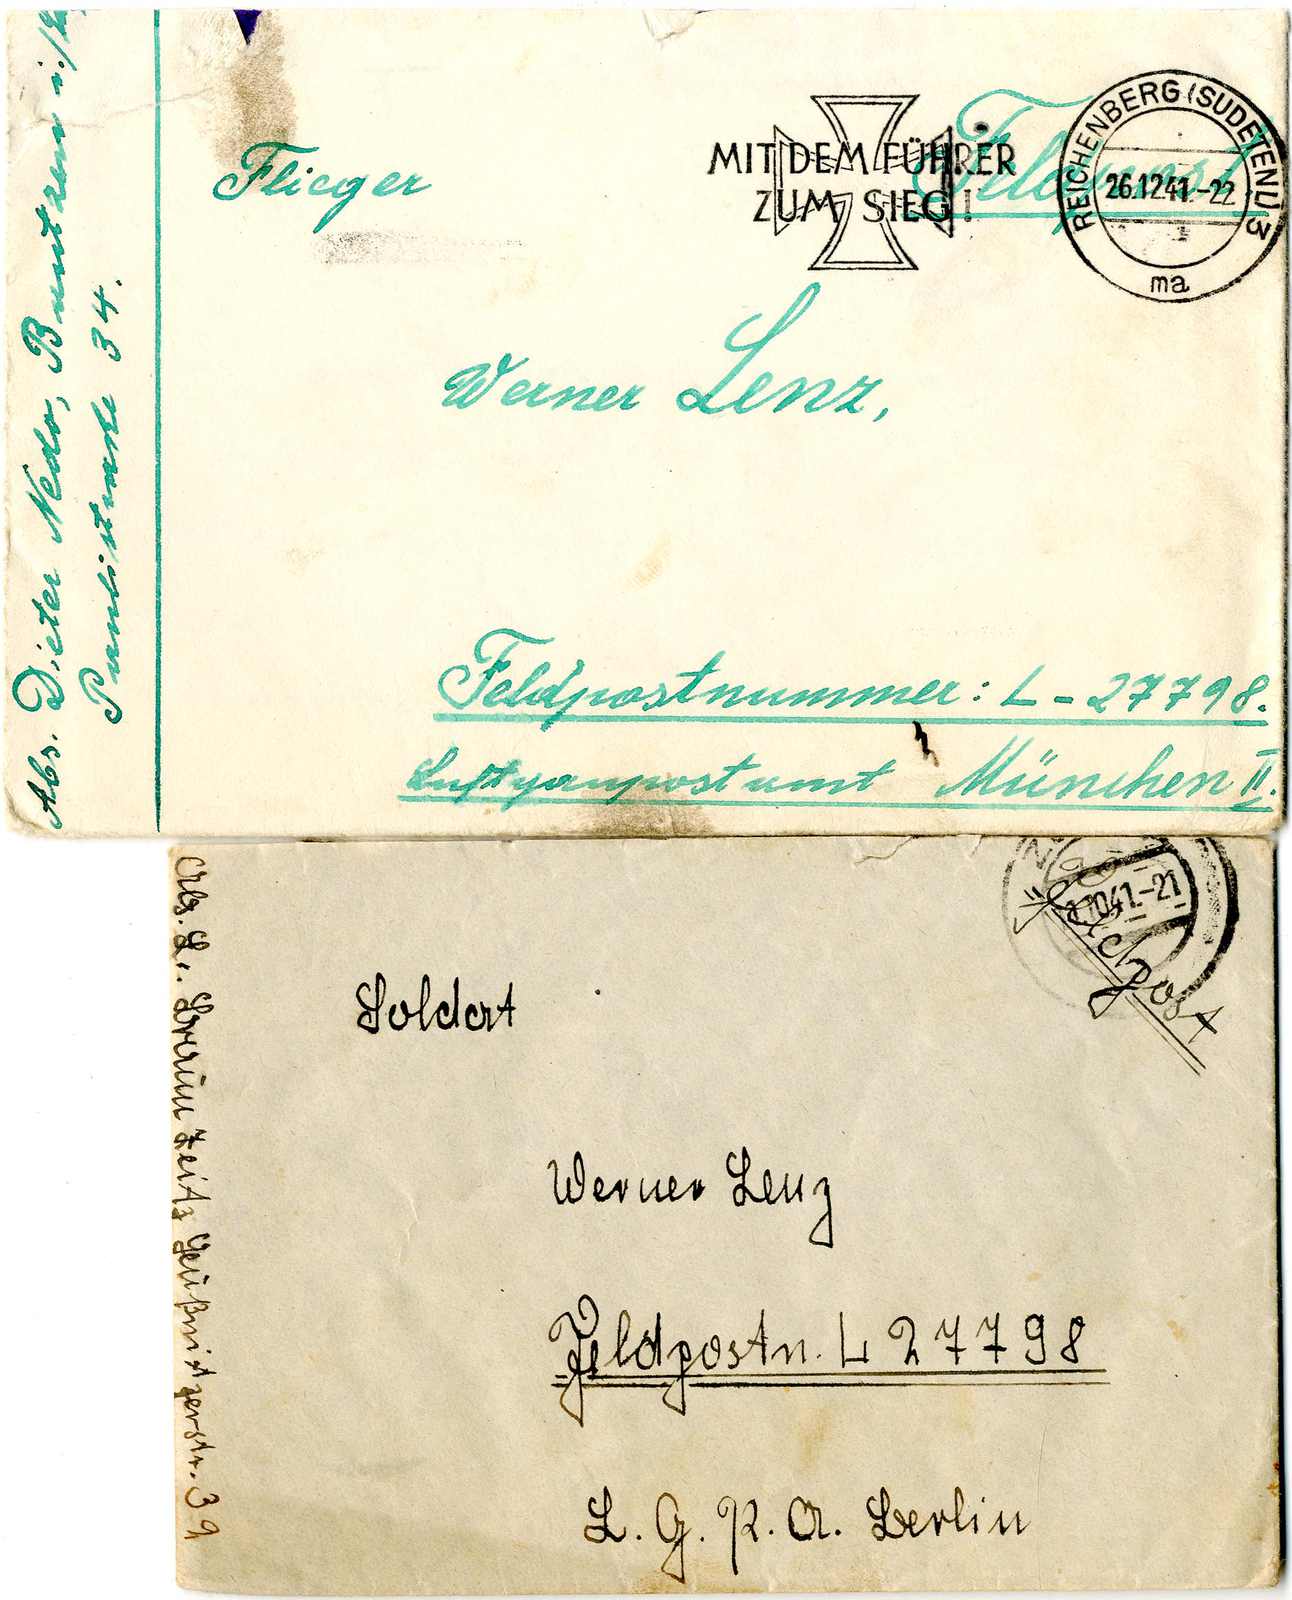 Abs. Dieter Nedo, Bautzen i./
Paulistraße 34.
Feldpost
MIT DEM FÜHRER
ZUM SIEG!
REICHENBERG (SUDETENL) 3
26.12.41.-22
ma
Flieger
Werner Lenz,
Feldpostnummer: L - 27798.
Luftgaupostamt München II.
Abs. L. Braun Zeitz Geußnitzerstr. 39
10.41.-21
"Feldpost
Soldat
Werner Lenz
Feldpostn. L 27798
L. G. P. A. Berlin